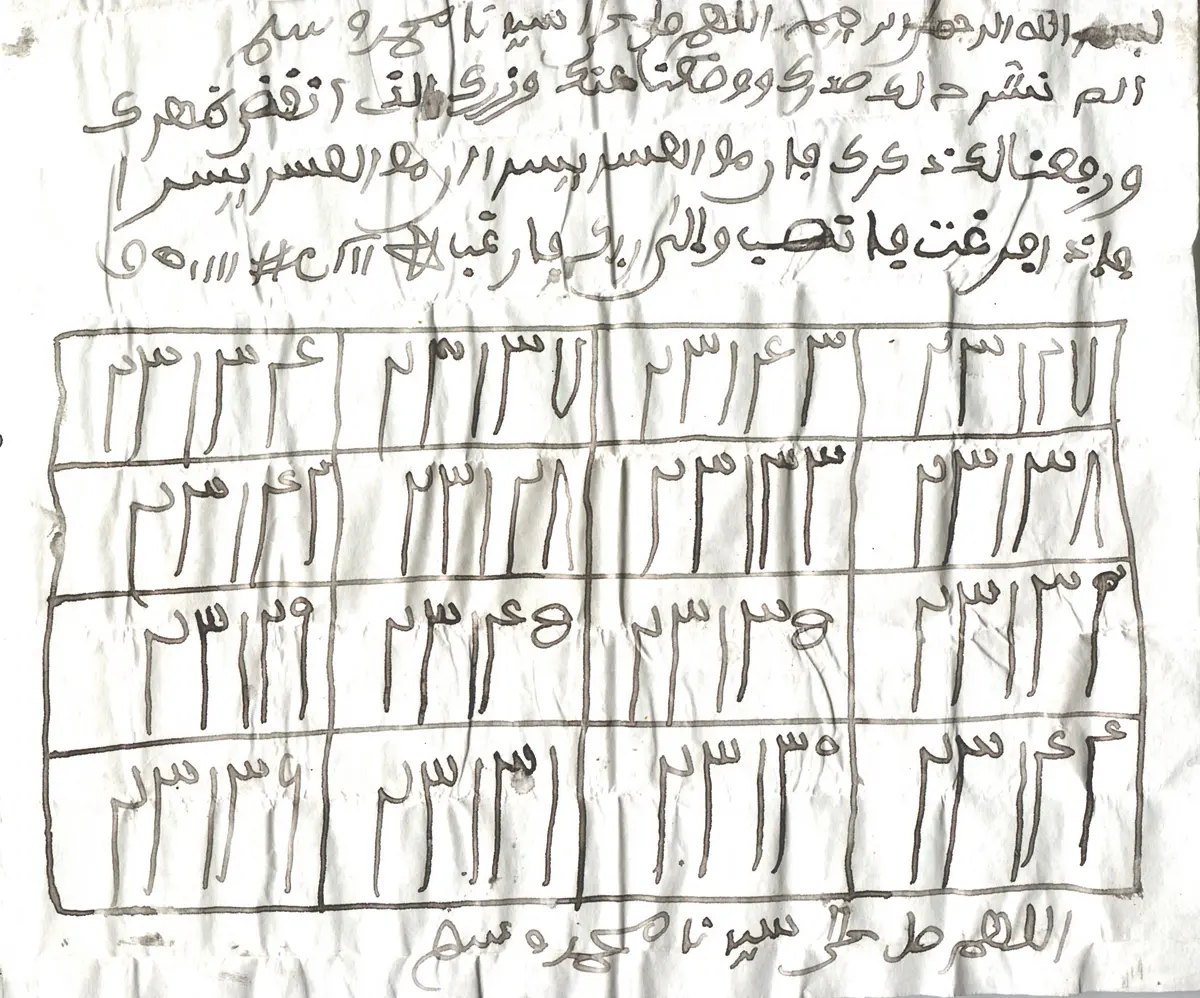 بسم الله الرحمن الرحيم اللهم صل على سيدنا محمد وسلم
الم نشرح لك صدرك ووضعنا عنك وزرك الذي انقض ظهرك
ورفعنا لك ذكرك فان مع العسر يسرا ان مع العسر يسرا
فاذا فرغت فانصب والى ربك فارغب
٢٣١٢٧ ٢٣١٤٣ ٢٣١٣٧ ٢٣١٣٤
٢٣١٣٨ ٢٣١٣٣ ٢٣١٢٨ ٢٣١٤٢
٢٣١٣٢ ٢٣١٣٥ ٢٣١٤٥ ٢٣١٢٩
٢٣١٤٤ ٢٣١٣٠ ٢٣١٣١ ٢٣١٣٩
اللهم صل على سيدنا محمد وسلم